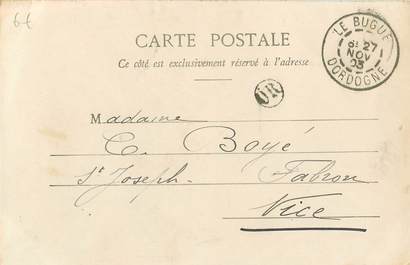 6€
CARTE POSTALE
Ce côté est exclusivement réservé à l'adresse
LE BUGUE
8E 27
NOV
03
DORDOGNE
OR
Madame
C. Boyé
St Joseph - Fabron
Nice